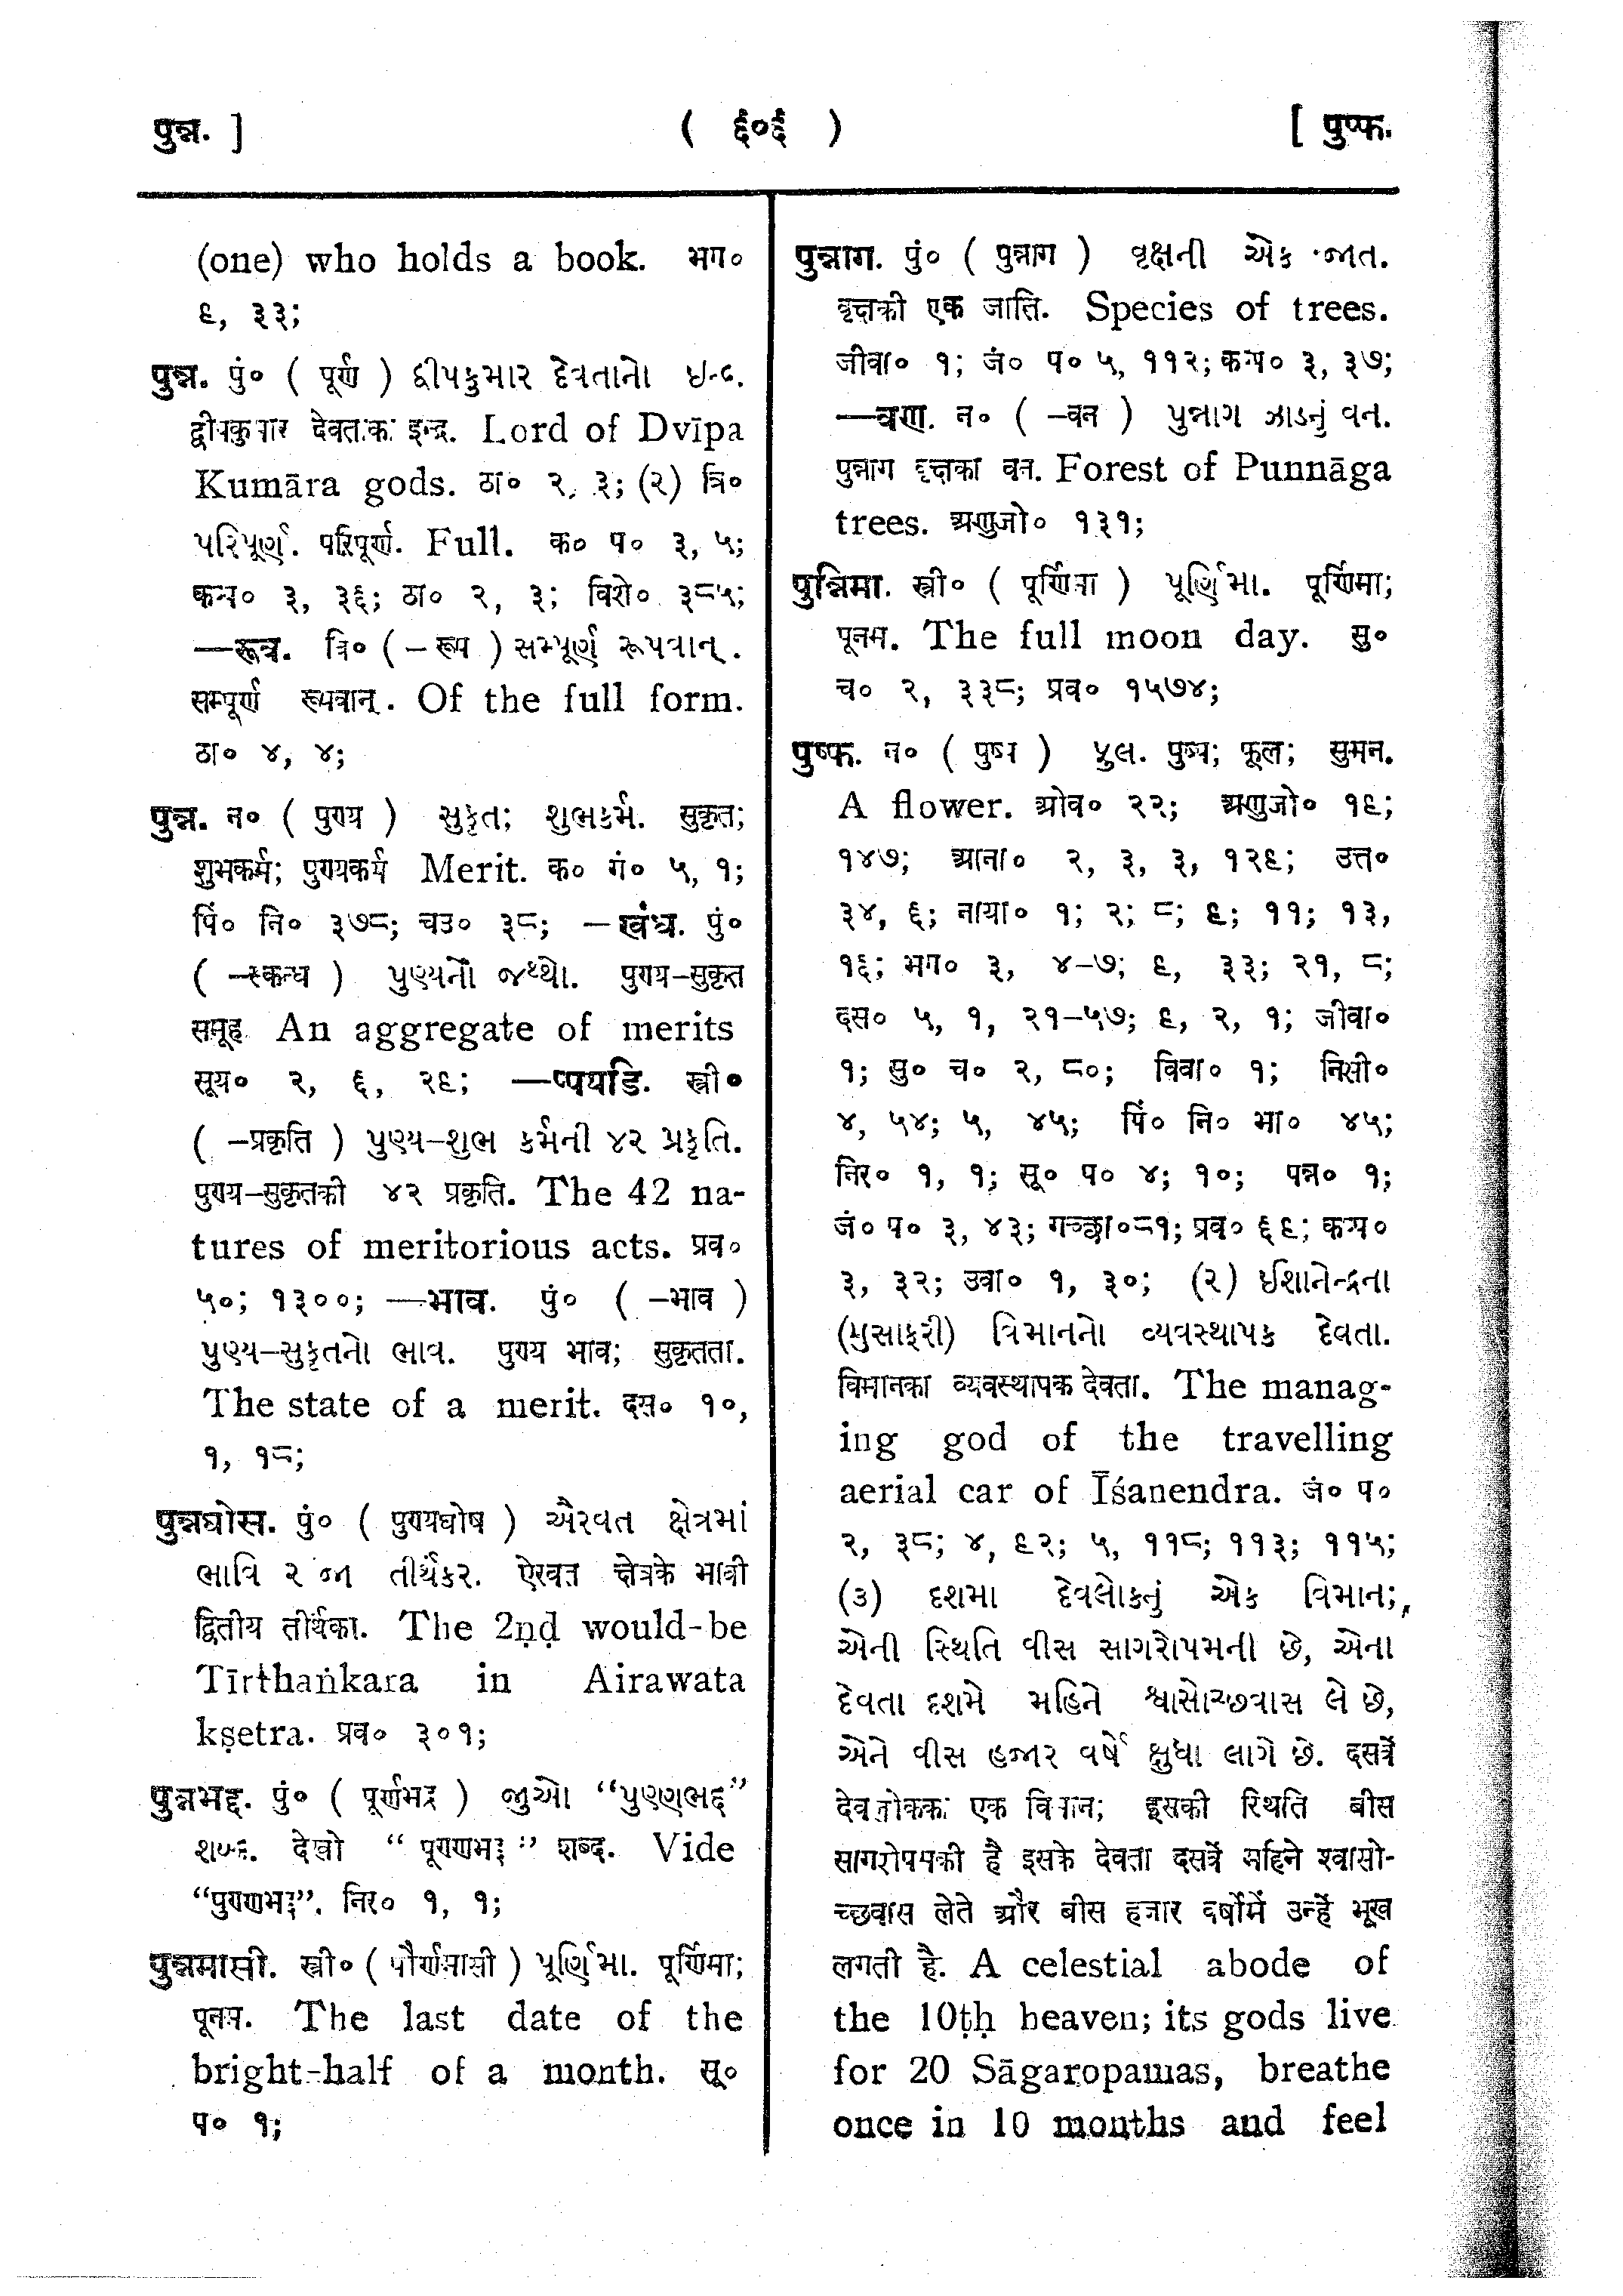 पुन्न. ]
( ६०६ )
[ पुप्फ.
(one) who holds a book. भग०
९, ३३;
पुन्न. पुं० ( पूर्ण ) દ્વીપકુમાર દેવતાનો ઇન્દ્ર.
द्वीपकुमार देवताका इन्द्र. Lord of Dvīpa
Kumāra gods. ठा० २, ३; (२) त्रि०
પરિપૂર્ણ. परिपूर्ण. Full. क० प० ३, ५;
कप्प० ३, ३६; ठा० २, ३; विशे० ३८५;
—रूव. त्रि० ( –रूप ) સમ્પૂર્ણ રૂપવાન્.
सम्पूर्ण रूपवान्. Of the full form.
ठा० ४, ४;
पुन्न. न० ( पुण्य ) સુકૃત; શુભકર્મ. सुकृत;
शुभकर्म; पुण्यकर्म Merit. क० गं० ५, १;
पिं० नि० ३७८; चउ० ३८; —खंध. पुं०
( –स्कन्ध ) પુણ્યનો જથ્થો. पुण्य–सुकृत
समूह. An aggregate of merits
सूय० २, ६, २९; —प्पयडि. स्त्री०
( –प्रकृति ) પુણ્ય–શુભ કર્મની ૪૨ પ્રકૃતિ.
पुण्य–सुकृतकी ४२ प्रकृति. The 42 na-
tures of meritorious acts. प्रव०
५०; १३००; —भाव. पुं० ( –भाव )
પુણ્ય–સુકૃતનો ભાવ. पुण्य भाव; सुकृतता.
The state of a merit. दस० १०,
१, १८;
पुन्नघोस. पुं० ( पुण्यघोष ) ઐરવત ક્ષેત્રમાં
ભાવિ ૨ જા તીર્થંકર. ऐरवत क्षेत्रके भावी
द्वितीय तीर्थंकर. The 2ṇḍ would-be
Tīrthaṅkara in Airawata
kṣetra. प्रव० ३०१;
पुन्नभद्द. पुं० ( पूर्णभद्र ) જુઓ “પુણ્ણભદ્દ”
શબ્દ. देखो “ पूण्णभद्द ” शब्द. Vide
“पुण्णभद्द”. निर० १, १;
पुन्नमासी. स्त्री० ( पौर्णमासी ) પૂર્ણિમા. पूर्णिमा;
पूनम. The last date of the
bright-half of a month. सू०
प० १;
पुन्नाग. पुं० ( पुन्नाग ) વૃક્ષની એક જાત.
वृक्षकी एक जाति. Species of trees.
जीवा० १; जं० प० ५, ११२; कप्प० ३, ३७;
—वण. न० ( –वन ) પુન્નાગ ઝાડનું વન.
पुन्नाग वृक्षका वन. Forest of Punnāga
trees. अणुजो० १३१;
पुन्निमा. स्त्री० ( पूर्णिमा ) પૂર્ણિમા. पूर्णिमा;
पूनम. The full moon day. सु०
च० २, ३३८; प्रव० १५७४;
पुप्फ. न० ( पुष्प ) ફુલ. पुष्प; फूल; सुमन.
A flower. ओव० २२; अणुजो० १६;
१४७; आया० २, ३, ३, १२६; उत्त०
३४, ६; नाया० १; २; ८; ९; ११; १३,
१६; भग० ३, ४–७; ९, ३३; २१, ८;
दस० ५, १, २१–५७; ९, २, १; जीवा०
१; सु० च० २, ८०; विवा० १; निसी०
४, ५४; ५, ४५; पिं० नि० भा० ४५;
निर० १, १; सू० प० ४; १०; पन्न० १;
जं० प० ३, ४३; गच्छा०८१; प्रव० ६९; कप्प०
३, ३२; उवा० १, ३०; (२) ઇશાનેન્દ્રના
(મુસાફરી) વિમાનનો વ્યવસ્થાપક દેવતા.
विमानका व्यवस्थापक देवता. The manag-
ing god of the travelling
aerial car of Īśanendra. जं० प०
२, ३८; ४, ९२; ५, ११८; ११३; ११५;
(૩) દશમા દેવલોકનું એક વિમાન;
એની સ્થિતિ વીસ સાગરોપમની છે, એના
દેવતા દશમે મહિને શ્વાસોચ્છવાસ લે છે,
એને વીસ હજાર વર્ષે ક્ષુધા લાગે છે. दसवें
देवलोकका एक विमान; इसकी स्थिति बीस
सागरोपमकी है इसके देवता दसवें महिने श्वासो-
च्छवास लेते और बीस हजार वर्षोंमें उन्हें भूख
लगती है. A celestial abode of
the 10ṭḥ heaven; its gods live
for 20 Sāgaropamas, breathe
once in 10 months and feel